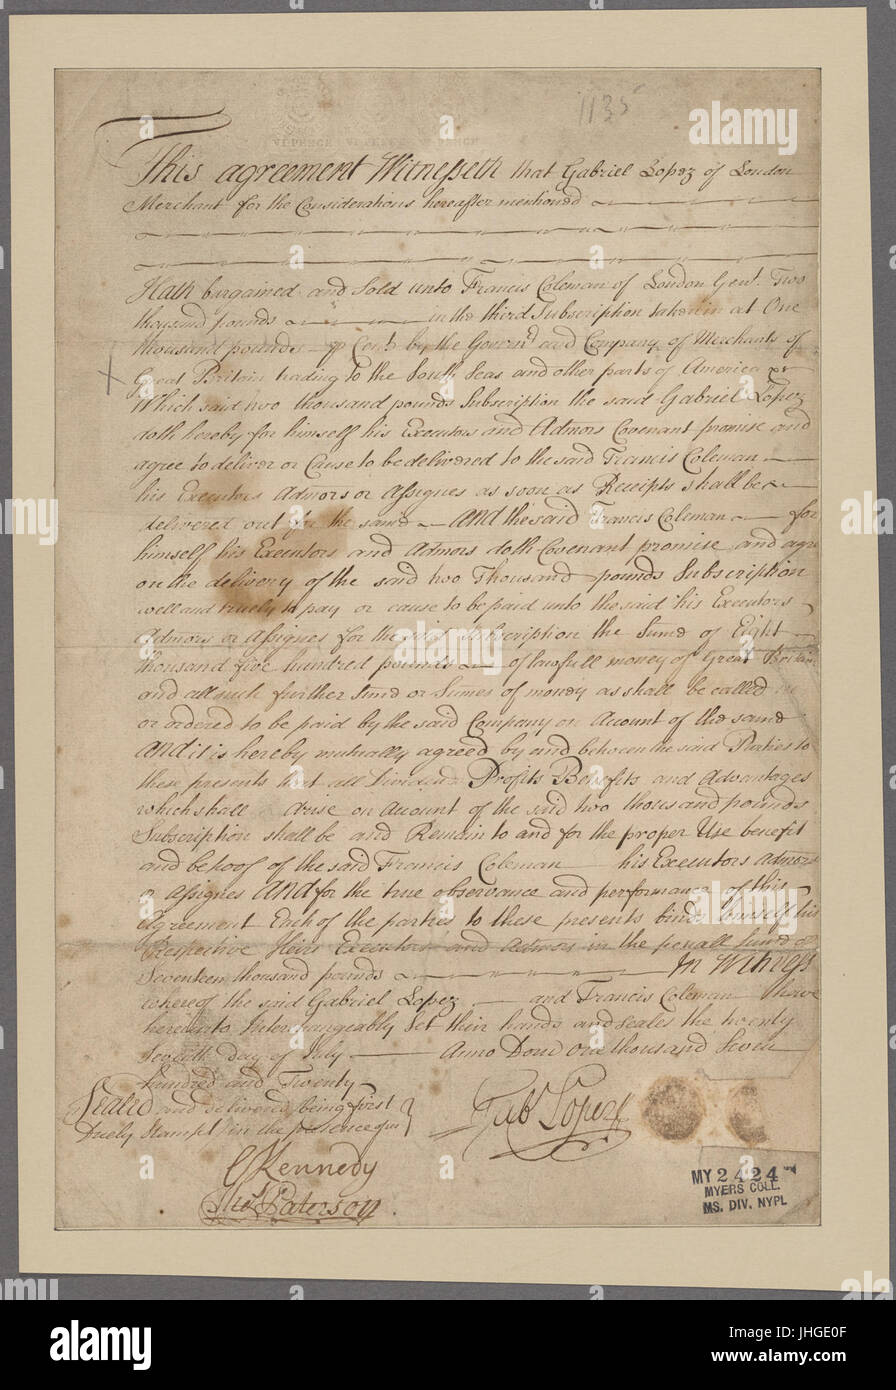 1135
VI PENCE VI PENCE VI PENCE
This agreement Witnesseth that Gabriel Lopez of London
Merchant for the Considerations hereafter mentioned
Hath bargained and Sold unto Francis Coleman of London Gent. Two
thousand pounds in the third Subscription taken in at One
thousand pounds Cent. by the Govern.rd and Company of Merchants of
Great Britain trading to the South Seas and other parts of America
Which said two thousand pounds Subscription the said Gabriel Lopez
doth hereby for himself his Executors and Admors Covenant promise and
agree to deliver or Cause to be delivered to the said Francis Coleman
his Executors Admors or Assignes as soon as Receipts shall be
delivered out for the same And the said Francis Coleman for
himself his Executors and Admors doth Covenant promise and agre
on the delivery of the said two Thousand pounds Subscription
well and truely to pay or cause to be paid unto the said his Executors
Admors or Assignes for the said Subscription the Sume of Eight
thousand five hundred pounds of lawfull money of Great Britain
and all such further Sume or Sumes of money as shall be called in
or ordered to be paid by the said Company on Account of the same
And it is hereby mutually agreed by and between the said Parties to
these presents that all Dividen. Profits Benefits and Advantages
which shall Arise on Account of the said two thousand pounds
Subscription shall be and Remain to and for the proper Use benefit
and behoof of the said Francis Coleman his Executors Admors
or Assignes And for the true observance and performance of this
Agreement Each of the parties to these presents binds himself his
Respective Heirs Executors and Admors in the penall Sume of
Seventeen thousand pounds In Witness
whereof the said Gabriel Lopez and Francis Coleman have
hereunto Interchangeably Set their hands and seales the twenty
Seventh Day of July Anno Dom One thousand Seven
hundred and Twenty
Sealed and delivered being first
Duely Stampt in the presence of us
Gab.l Lopez
G Kennedy
Tho.s Paterson
MY 2424
MYERS COLL.
MS. DIV. NYPL
alamy
JHGE0F
www.alamy.com